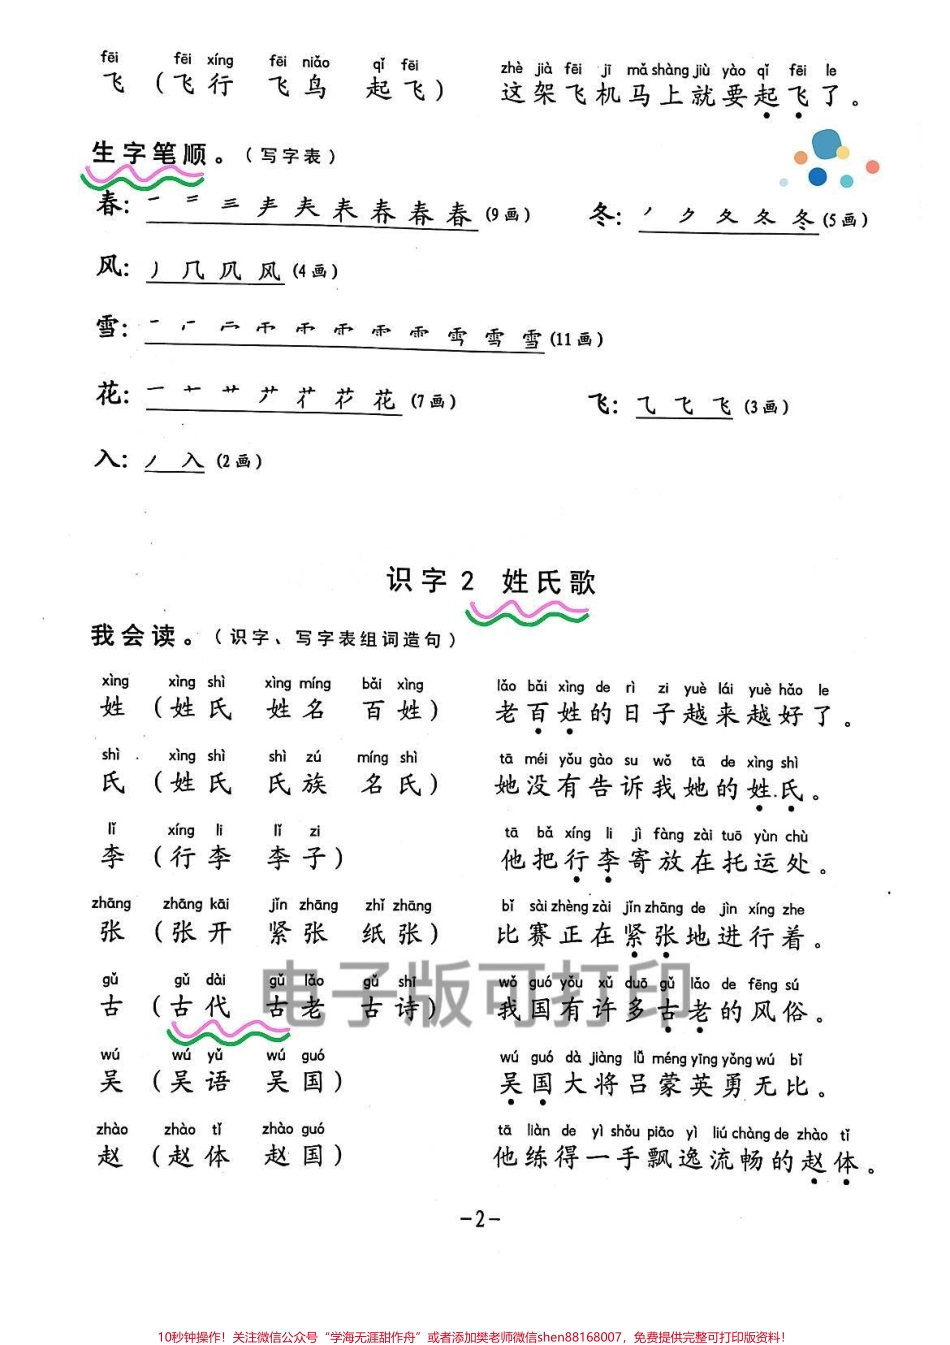 fēi fēi xíng fēi niǎo qǐ fēi zhè jià fēi jī mǎ shàng jiù yào qǐ fēi le
飞（飞行 飞鸟 起飞） 这架飞机马上就要起飞了。
生字笔顺。（写字表）
春：(9画) 冬：(5画)
风：(4画)
雪：(11画)
花：(7画) 飞：(3画)
入：(2画)
识字2 姓氏歌
我会读。（识字、写字表组词造句）
xìng xìng shì xìng míng bǎi xìng lǎo bǎi xìng de rì zi yuè lái yuè hǎo le
姓（姓氏 姓名 百姓） 老百姓的日子越来越好了。
shì xìng shì shì zú míng shì tā méi yǒu gào su wǒ tā de xìng shì
氏（姓氏 氏族 名氏） 她没有告诉我她的姓氏。
lǐ xíng li lǐ zi tā bǎ xíng li jì fàng zài tuō yùn chù
李（行李 李子） 他把行李寄放在托运处。
zhāng zhāng kāi jǐn zhāng zhǐ zhāng bǐ sài zhèng zài jǐn zhāng de jìn xíng zhe
张（张开 紧张 纸张） 比赛正在紧张地进行着。
gǔ gǔ dài gǔ lǎo gǔ shī wǒ guó yǒu xǔ duō gǔ lǎo de fēng sú
古（古代 古老 古诗） 我国有许多古老的风俗。
电子版可打印
wú wú yǔ wú guó wú guó dà jiàng lǚ méng yīng yǒng wú bǐ
吴（吴语 吴国） 吴国大将吕蒙英勇无比。
zhào zhào tǐ zhào guó tā liàn de yì shǒu piāo yì liú chàng de zhào tǐ
赵（赵体 赵国） 他练得一手飘逸流畅的赵体。
-2-
10秒钟操作！关注微信公众号“学海无涯甜作舟”或者添加樊老师微信shen88168007，免费提供完整可打印版资料！